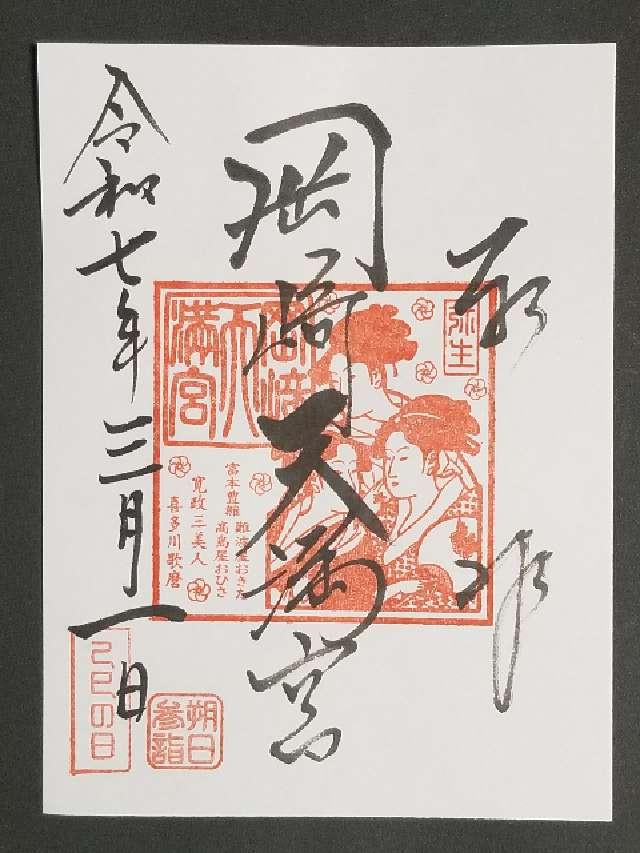 奉拝
弥生
岡崎天満宮
岡崎天満宮
難波屋おきた
高島屋おひさ
富本豊雛
寛政三美人
喜多川歌麿
令和七年三月一日
朔日参詣
己巳の日